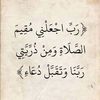 ﴿رَبِّ اجْعَلْنِي مُقِيمَ
الصَّلَاةِ وَمِنْ ذُرِّيَّتِي
رَبَّنَا وَتَقَبَّلْ دُعَاءِ﴾